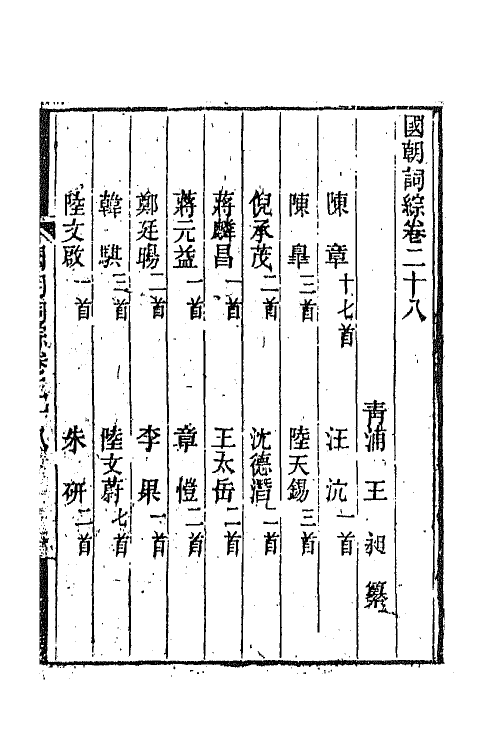 國朝詞綜卷二十八
青浦 王 昶 纂
陳 章 十七首 汪 沆 一首
陳 臯 三首 陸天錫 三首
倪承茂 二首 沈德潛 一首
蔣麟昌 一首 王太岳 二首
蔣元益 一首 章 愷 二首
鄭廷暘 二首 李 果 一首
韓 騏 三首 陸文蔚 七首
陸文啟 一首 朱 研 二首